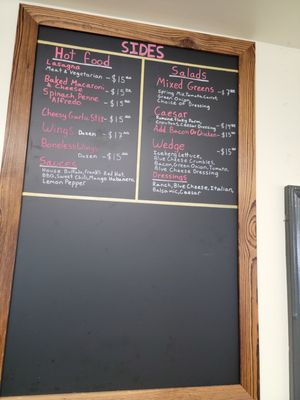 SIDES
Hot Food
Lasagna -$15
Meat & Vegetarian
Baked Macaroni -$15
& Cheese
Spinach Penne -$15
Alfredo
Cheesy Garlic Stix -$15
Wings Dozen -$17
Boneless Wings
Dozen -$15
Sauces
House Buffalo, Frank's Red Hot
BBQ, Sweet Chili, Mango Habanero,
Lemon Pepper
Salads
Mixed Greens -$7
Spring Mix, Tomato, Carrot
Onion
Choice of Dressing
Caesar
Romaine, Parm,
Croutons, Caesar Dressing
Add Bacon Or Chicken
Wedge -$15
Iceberg Lettuce,
Blue Cheese Crumbles,
Bacon, Green Onion, Tomato,
Blue Cheese Dressing
Dressings
Ranch, Blue Cheese, Italian,
Balsamic, Caesar